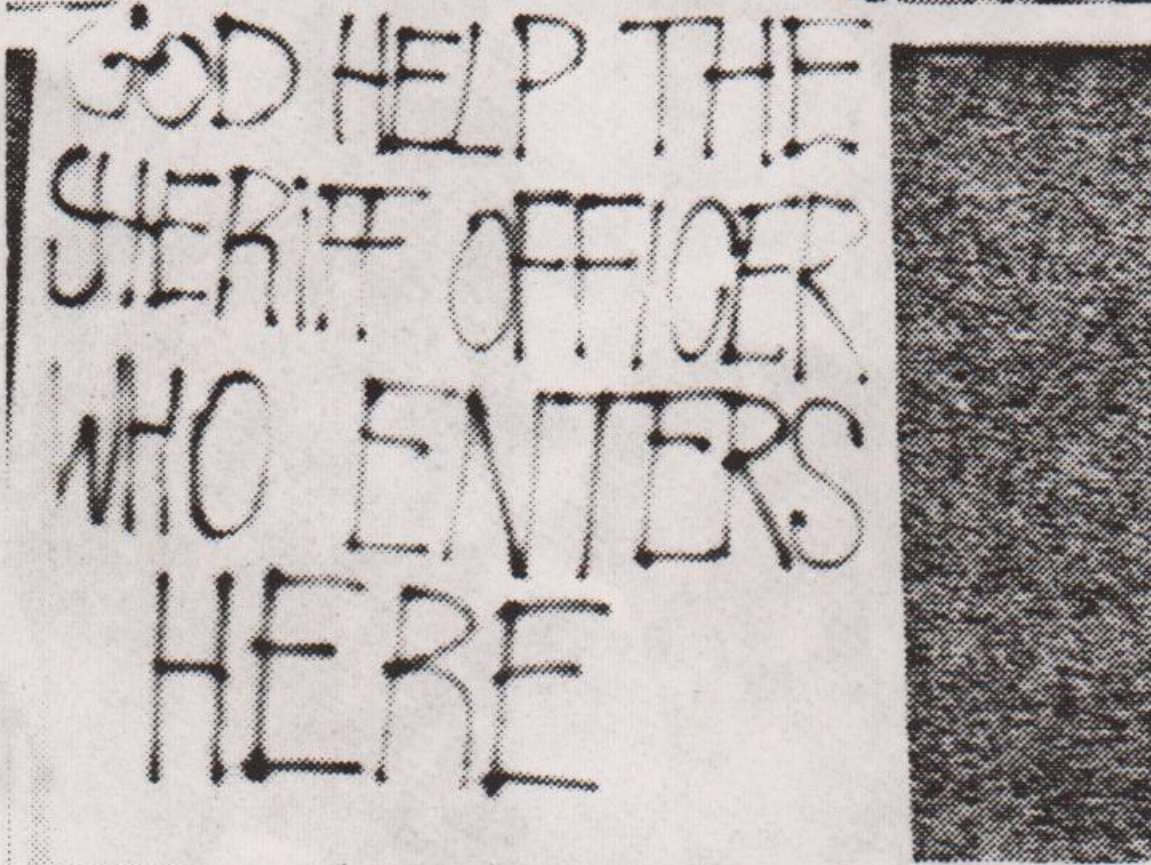 GOD HELP THE
SHERiFF OFFICER
WHO ENTERS
HERE